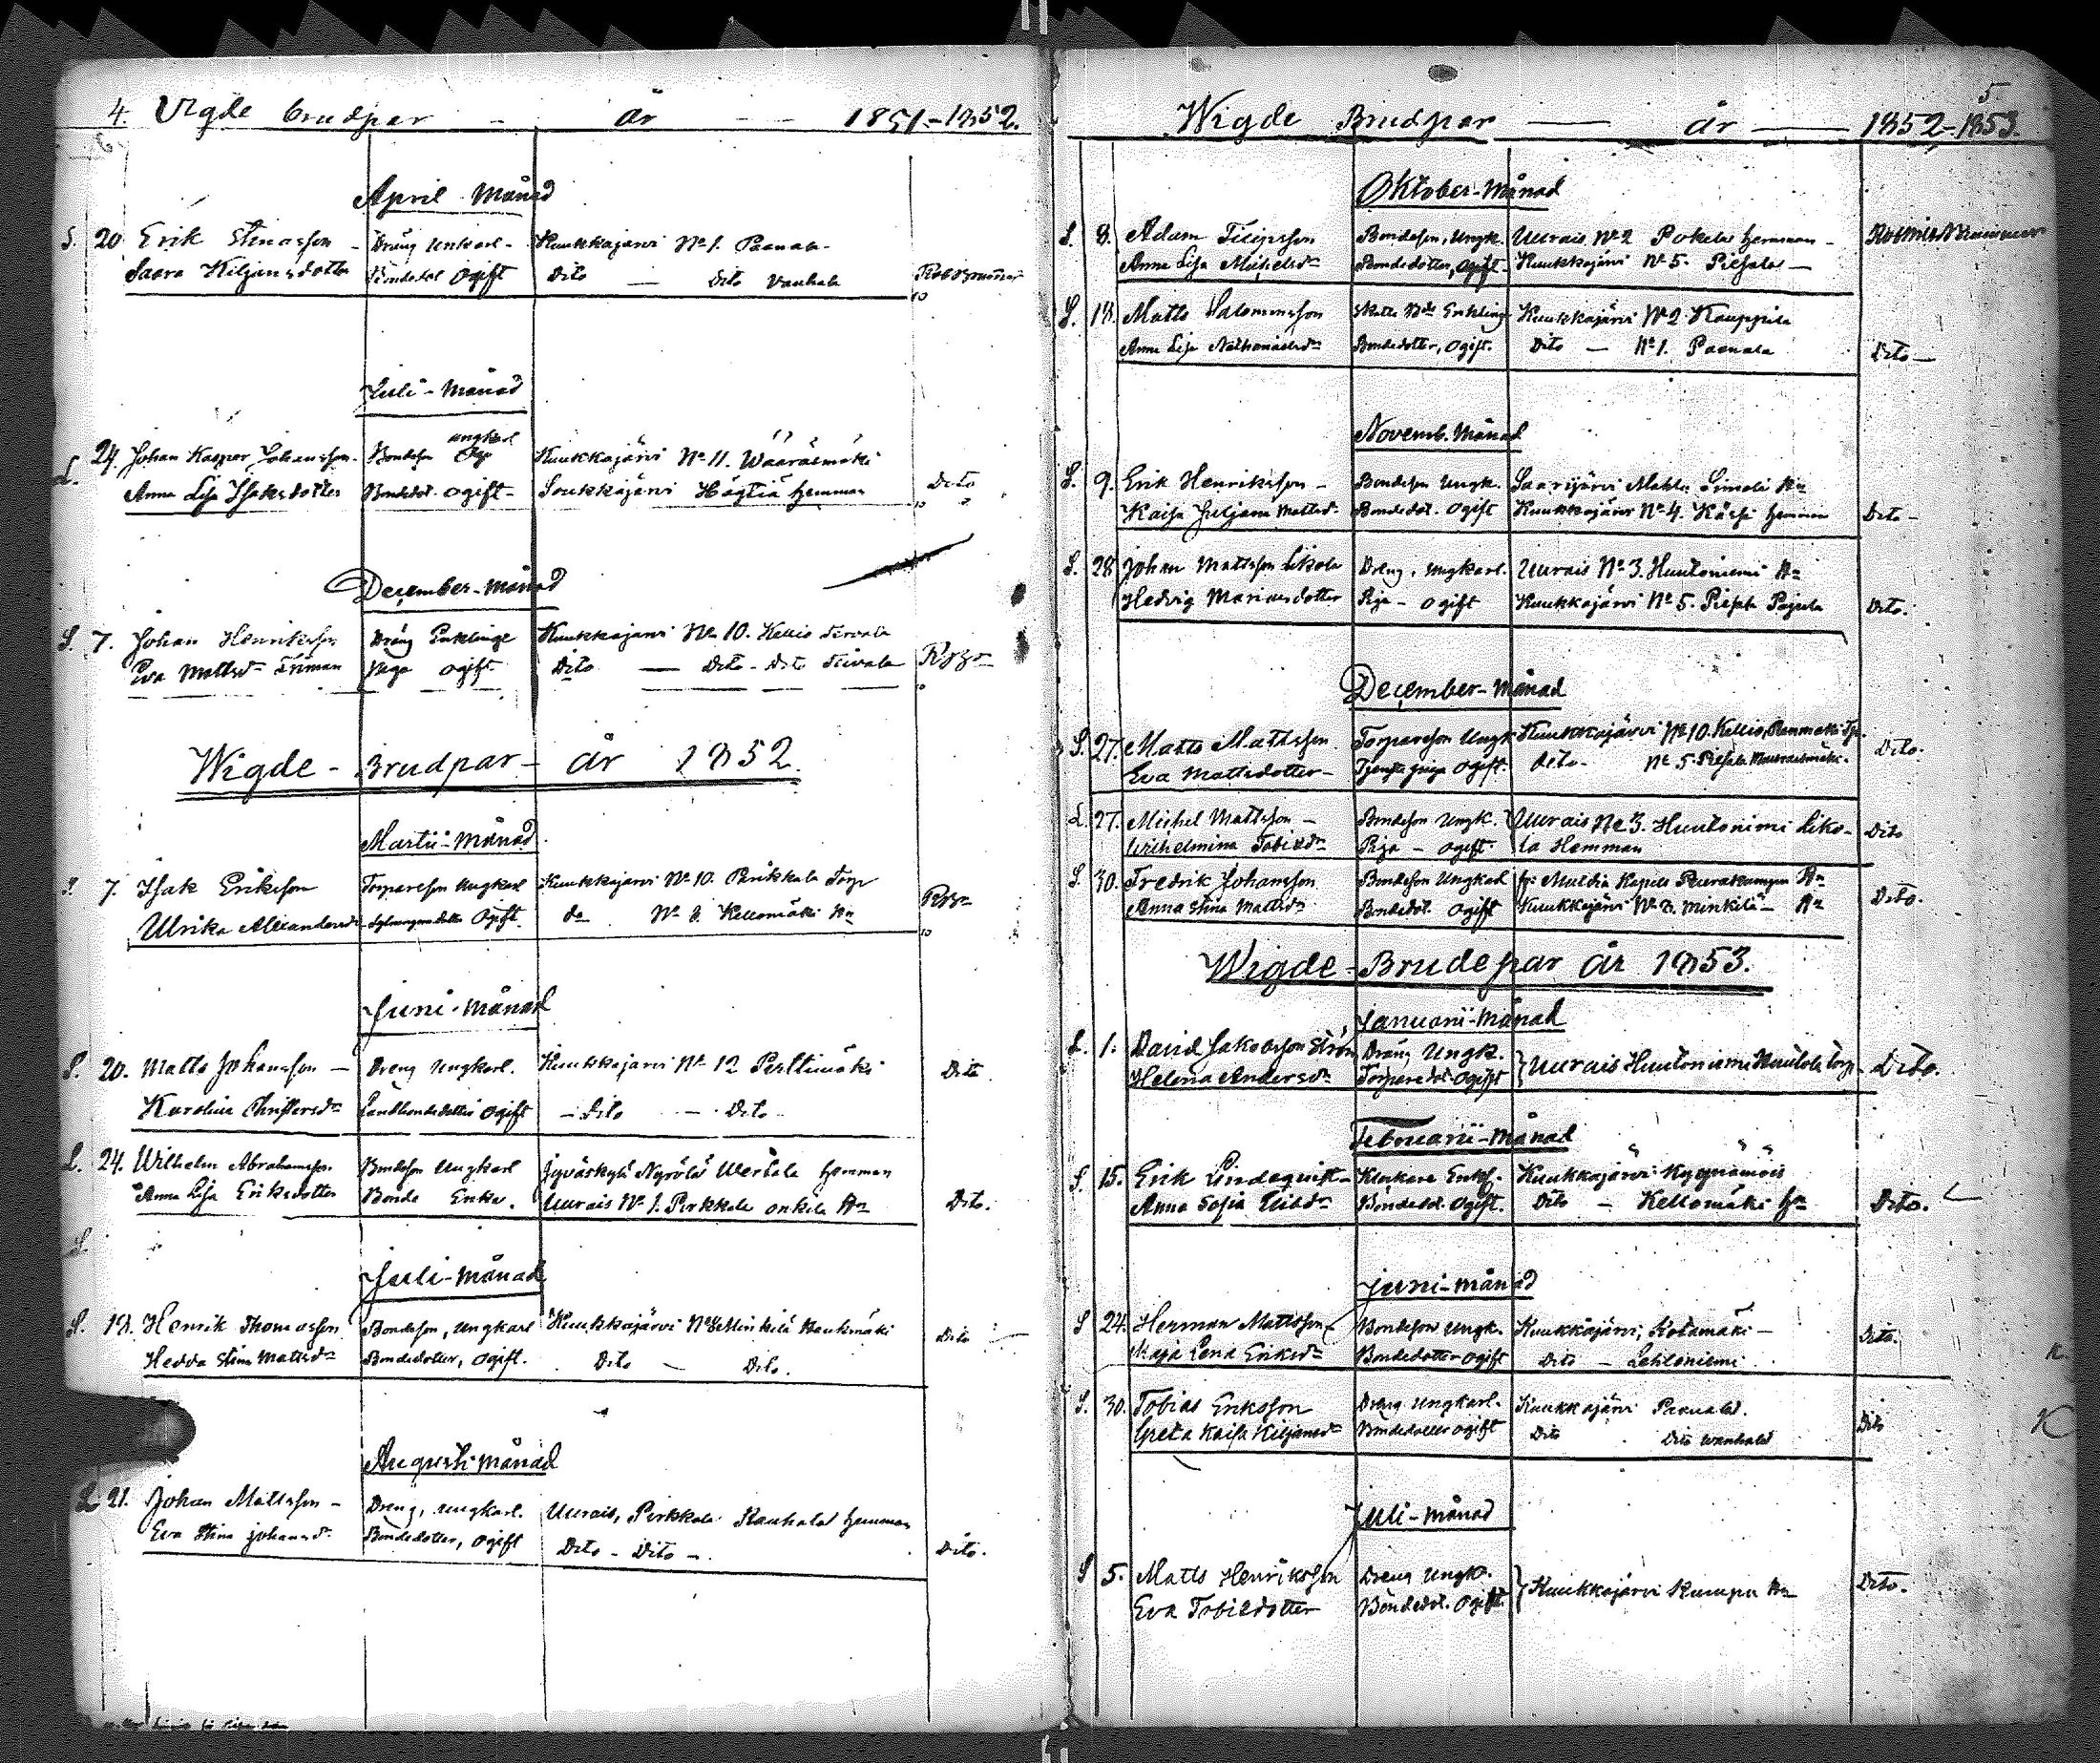 4. Vigde brudpar - år - - 1851-1852.
April Månad
S. 20 Erik Stinasson - Dräng Unkarl - Kuukkajärvi No 1. Paanala -
Saara Kiljansdotter Bondedot Ogift Dito - Dito Vanhala
Juli - Månad
24. Johan Kasper Johansson Bondeson ungkarl Kuukkajärvi No 11. Wäärälmäki
L. Anna Lisa Isaksdotter Bondedot. ogift - Soukkajärvi hemman Dito
December - månad
S. 7. Johan Henriksson Dräng Enklinge Kuukkajarvi No 10. Kellio
Eva Mattsdr Piga ogift Dito - Dito - Dito
Wigde - Brudpar - år 1852.
Martii - Månad
S. 7. Isak Eriksson Torpareson ungkarl Kuukkajarvi No 10. Torp
Ulrika Alexandersdr Ogift. do No 8. Kellomäki Hn
Juni - Månad
S. 20. Matts Johansson - Dreng Ungkarl. Kuukkajarvi No 12 Perttimäki Dito
Karolina Christersdr Landbondedotter Ogift - Dito - Dito
L. 24. Wilhelm Abrahamsson Bondeson Ungkarl Jyväskylä Nyrölä hemman
Anna Lisa Eriksdotter Bonde Enka. Uurais No 1. Pirkkala Hn Dito.
S.
Juli - månad
S. 18. Henrik Thomasson Bondeson, Ungkarl Kuukkajärvi Dito
Hedda Stina Mattsdr Bondedotter, ogift. Dito - Dito.
Augusti månad
L 21. Johan Mattsson - Dreng, ungkarl. Uurais, Pirkkala Rauhala hemman
Eva Stina Johansdr Bondedotter, ogift Dito - Dito - Dito.
5
Wigde Brudpar - år - 1852-1853.
Oktober - Månad
S. 8. Adam Bondeson, Ungk. Uurais No 2 hemman -
Anna Lisa Michelsdr Bondedotter, ogift - Kuukkajärvi No 5. Piesala -
S. 18. Matts Salomonsson Enkling Kuukkajärvi No 2 Kauppila
Anna Lisa Nathanaelsdr Bondedotter, Ogift. Dito - No 1. Paanala Dito -
Novemb. Månad
S. 9. Erik Henriksson - Bondeson Ungk. Saarijärvi Mahlu Hn
Kaisa Juliana Mattsdr Bondedot. ogift Kuukkajärvi No 4. hemman Dito -
S. 28 Johan Mattsson Likola Dreng, ungkarl. Uurais No 3. Huutoniemi Hn
Hedvig Mariasdotter Piga - ogift Kuukkajärvi No 5. Piesala Dito.
December - Månad
S. 27. Matts Mattsson Torpareson Ungk Kuukkajärvi No 10. Kellio,
Eva Mattsdotter - ogift. dito - No 5. Piesala Dito.
L. 27. Michel Mattsson - Bondeson Ungk. Uurais No 3. Huutonimi Liko-
Wilhelmina Tobiedr Piga - ogift. la Hemman Dito
S. 30. Fredrik Johansson Bondeson Ungkarl fr. Multia Kapell Hn
Anna Stina Mattsdr Bondedot. ogift Kuukkajärvi No 8. Minkilä - Hn Dito.
Wigde - Brudepar år 1853.
Januarii - Månad
L. 1. David Jakobsson Dräng Ungk.
Helena Andersdr Torparedot ogift } Uurais Huutoniemi Torp Dito.
Februarii - Månad
S. 15. Erik Lindeqvist - Klockare Enkl. Kuukkajärvi
Anna Sofia Bondedot. Ogift. Dito - Kellomäki Hn Dito.
Juni - Månad
S 24. Herman Mattsson Bondeson Ungk. Kuukkajärvi, Kotamäki - Dito.
Maja Lena Eriksdr Bondedotter ogift Dito - Lehtoniemi
S. 30. Tobias Eriksson Dreng Ungkarl. Kuukkajärvi Paanala.
Greta Kaisa Kiljansdr Bondedotter ogift Dito Dito wanhala Dito
Juli - Månad
S 5. Matts Henriksson Dreng Ungk.
Eva Tobiedotter Bondedot. ogift. } Kuukkajärvi Kumpu Hn Dito.